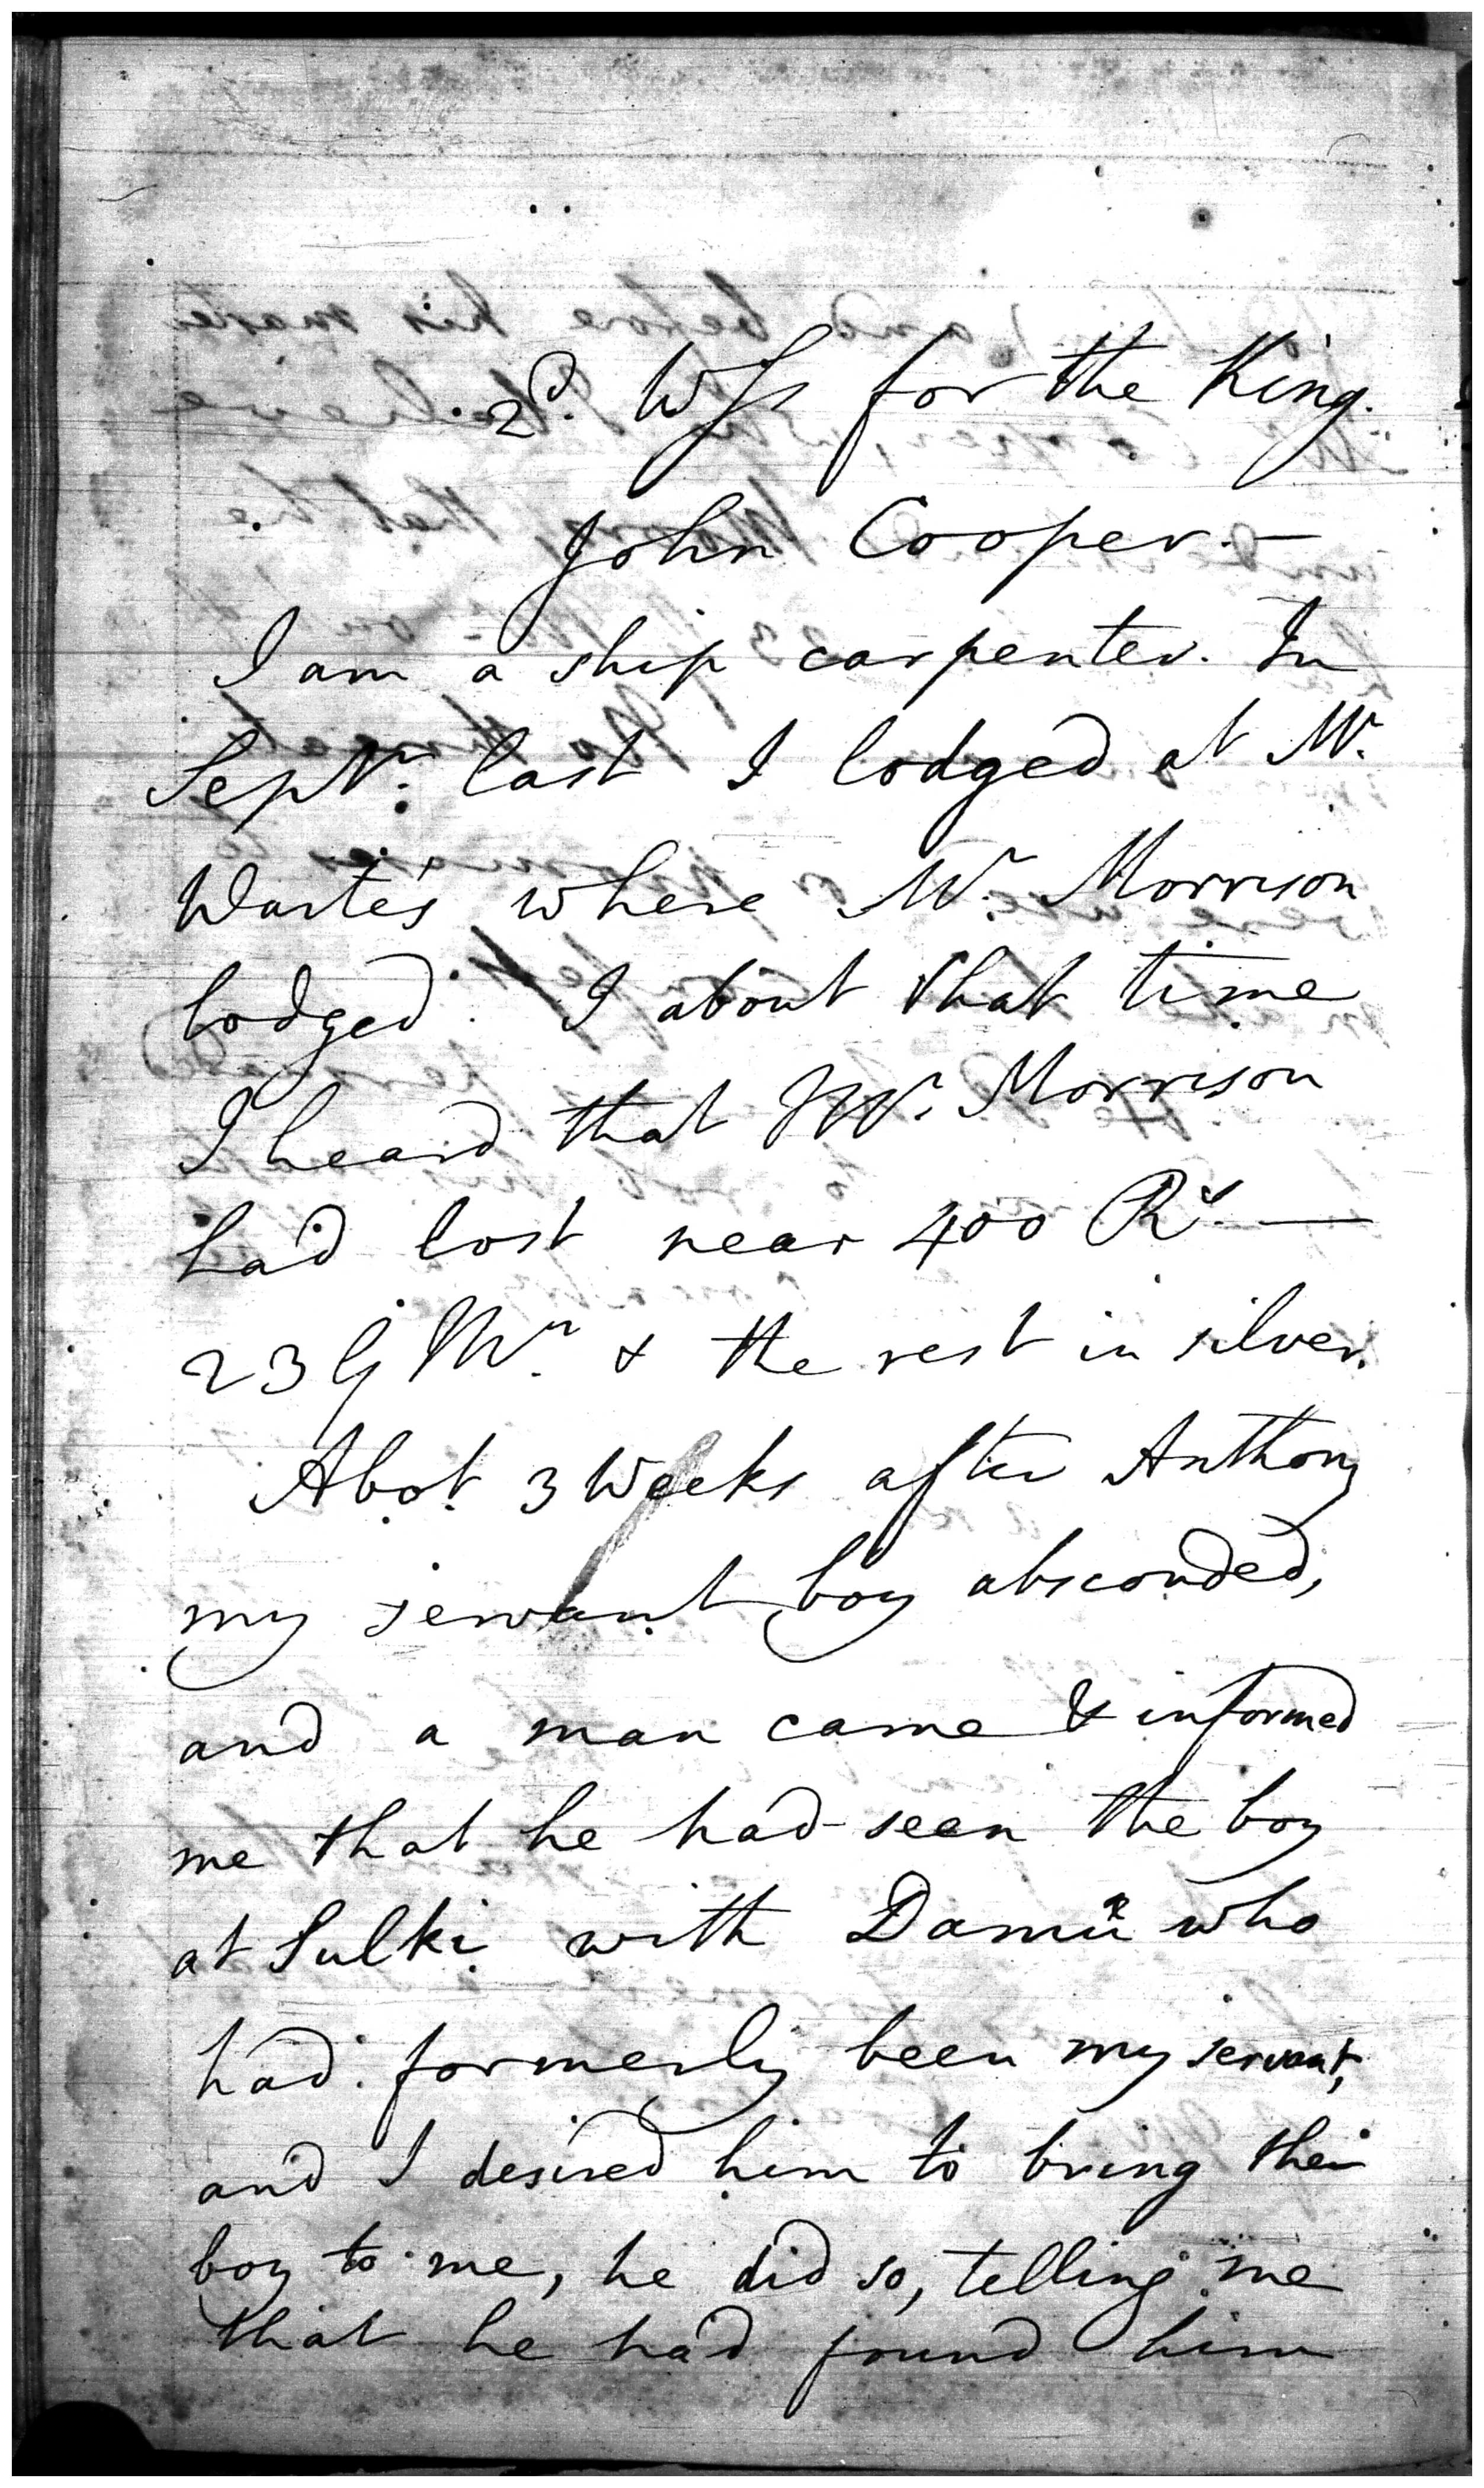 2d. Wss for the King.
John Cooper.—
I am a ship carpenter. In
Septr. last I lodged at Mr.
Wartes where Mr. Morrison
lodged. I about that time
I heard that Mr. Morrison
had lost near 400 Rs.—
23 G Mrs. & the rest in silver.
Abot. 3 Weeks after Anthony
my servant boy absconded,
and a man came & informed
me that he had seen the boy
at Sulki with Damu who
had formerly been my servant,
and I desired him to bring the
boy to me, he did so, telling me
that he had found him